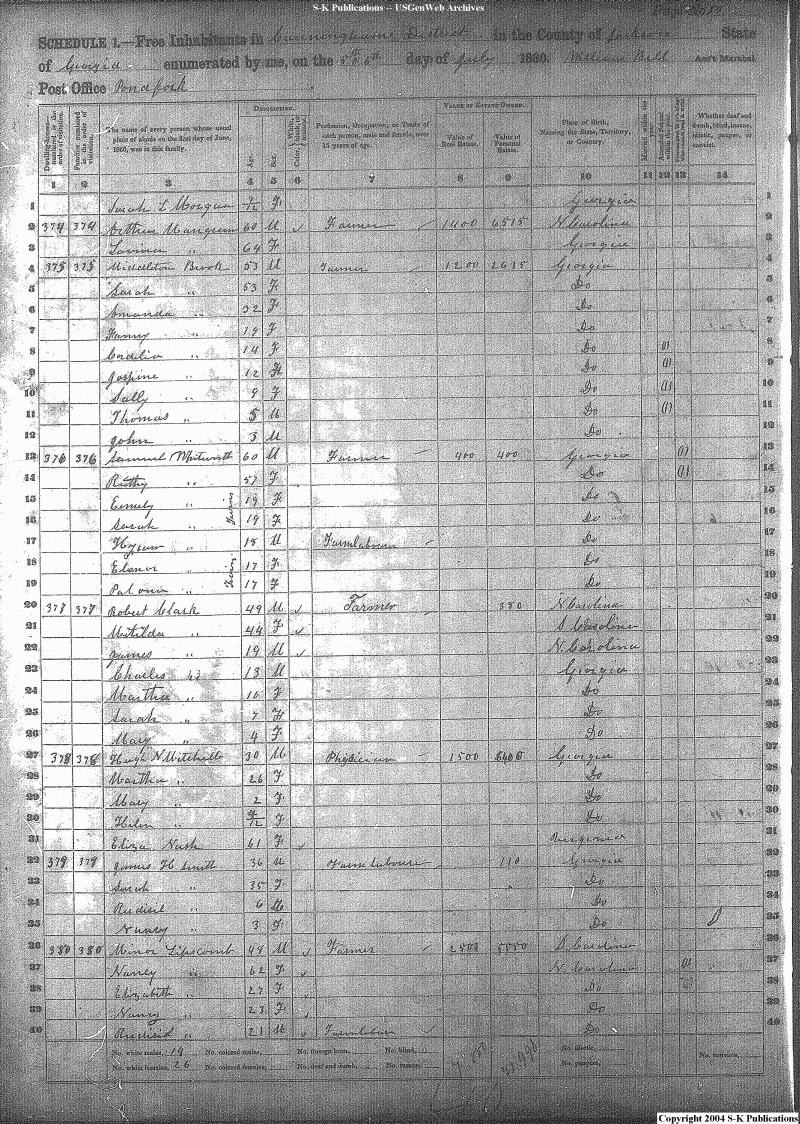 S-K Publications -- USGenWeb Archives
SCHEDULE 1.—Free Inhabitants in Cunninghams District in the County of Jackson State
of Georgia enumerated by me, on the 5th 6th day of July 1860. William Bell Ass't Marshal.
Post Office Pond fork
Dwelling-houses numbered in the order of visitation.
Families numbered in the order of visitation.
The name of every person whose usual place of abode on the first day of June, 1860, was in this family.
DESCRIPTION.
Age.
Sex.
Color, White, black, or mulatto.
Profession, Occupation, or Trade of each person, male and female, over 15 years of age.
VALUE OF ESTATE OWNED.
Value of Real Estate.
Value of Personal Estate.
Place of Birth, Naming the State, Territory, or Country.
Married within the year.
Whether deaf and dumb, blind, insane, idiotic, pauper, or convict.
1 2 3 4 5 6 7 8 9 10 11 12 13 14
1 Sarah L Mangum 7/12 F Georgia 1
2 374 374 Mangum 60 M Farmer 1400 6515 N Carolina 2
3 " 64 F Georgia 3
4 375 375 Middleton Brook 53 M Farmer 1200 2615 Georgia 4
5 Sarah " 53 F Do 5
6 Amanda " 32 F Do 6
7 Fanny " 19 F Do 7
8 Cordelia " 14 F Do (1) 8
9 Jospine " 12 F Do (1) 9
10 Sally " 9 F Do (1) 10
11 Thomas " 5 M Do (1) 11
12 John " 3 M Do 12
13 376 376 Samuel Whitworth 60 M Farmer 400 400 Georgia (1) 13
14 Ruthy " 57 F Do (1) 14
15 Emily " Twins 19 F Do 15
16 Sarah " 19 F Do 16
17 Hyram " 18 M Farmlabourer Do 17
18 Elenor " Twins 17 F Do 18
19 " 17 F Do 19
20 377 377 Robert Clark 49 M Farmer 380 N Carolina 20
21 Matilda " 44 F S Carolina 21
22 James " 19 M N Carolina 22
23 Charles 13 M Georgia 23
24 Martha " 10 F Do 24
25 Sarah " 7 F Do 25
26 Mary " 4 F Do 26
27 378 378 Hugh N Mitchell 30 M Physician 1500 6400 Georgia 27
28 Martha " 26 F Do 28
29 Mary " 2 F Do 29
30 Helen " /12 F Do 30
31 Eliza Nash 61 F Virginia 31
32 379 379 James H Smith 36 M Farm labourer 110 Georgia 32
33 Sarah " 35 F Do 33
34 Rudisil " 6 M Do 34
35 Nancy " 3 F Do 35
36 380 380 Minor Lipscomb 48 M Farmer 2500 5550 S Carolina 36
37 Nancy " 62 F N Carolina (1) 37
38 Elizabeth " 27 F Do 38
39 Nancy " 23 F Do 39
40 Rudisil " 21 M Farmlabour Do 40
No. white males, 14 No. colored males, No. foreign born, No. blind, No. idiotic, No. convicts,
No. white females, 26 No. colored females, No. deaf and dumb, No. insane, No. paupers,
Copyright 2004 S-K Publications